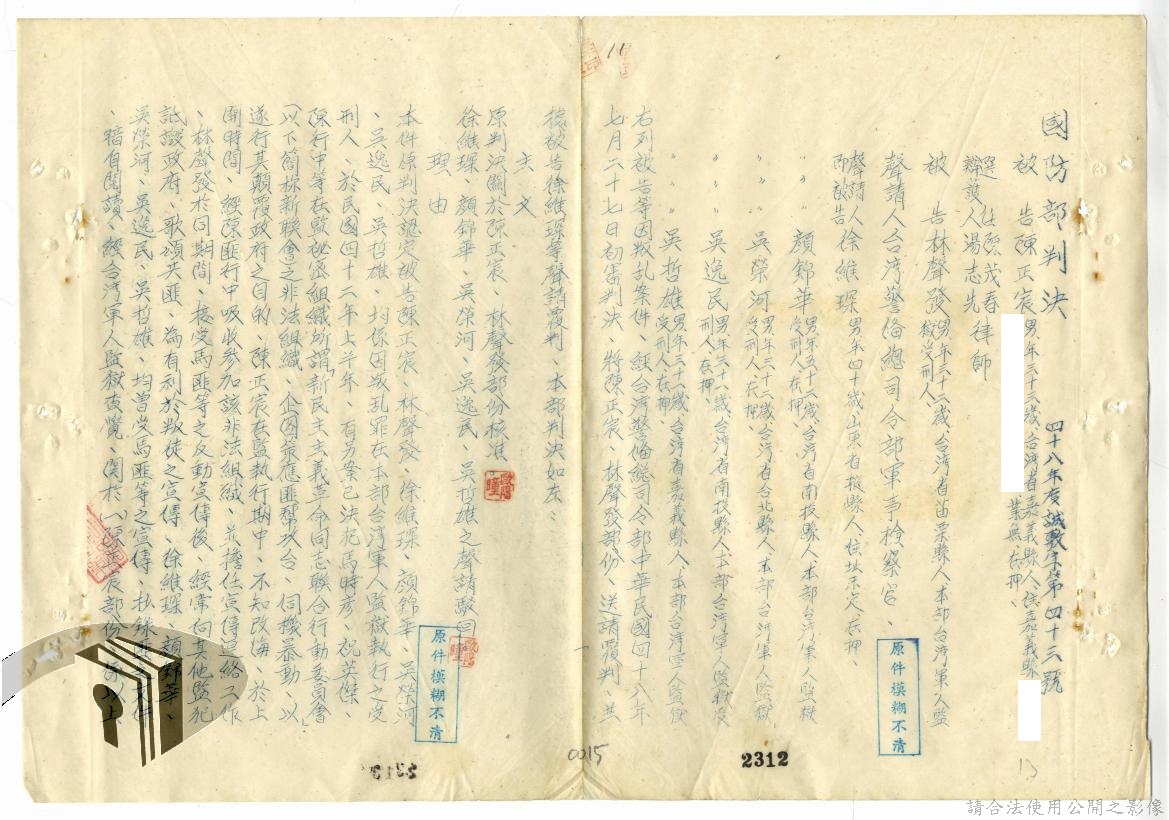 國防部判決
四十八年度誠敷字第四十三號
被告陳正宸男年三十三歲、台灣省嘉義縣人、住嘉義縣
業無在押、
選任陳茂春律師
辯護人湯志先
被告林聲發男年三十二歲、台灣省苗栗縣人、本部台灣軍人監獄受刑人、
聲請人台灣警備總司令部軍事檢察官、
聲請人即被告徐維琛男年四十歲山東省掖縣人、住址不定、在押、
〃〃顏錦華男年五十二歲、台灣省南投縣人、本部台灣軍人監獄受刑人、在押、
〃〃吳榮河男年三十二歲、台灣省台北縣人、本部台灣軍人監獄受刑人、在押、
〃〃吳逸民男年三十一歲、台灣省南投縣人、本部台灣軍人監獄受刑人、在押、
〃〃吳哲雄男年三十一歲、台灣省嘉義縣人、本部台灣軍人監獄受刑人、在押、
右列被告等因叛乱案件、經台灣警備總司令部中華民國四十八年
七月二十七日初審判決、將陳正宸、林聲發部份、送請覆判、並
據被告徐維琛等聲請覆判、本部判決如左：
主文
原判決關於陳正宸、林聲發部份核准。
徐維琛、顏錦華、吳榮河、吳逸民、吳哲雄之聲請駁回。
理由
本件原判決認定被告陳正宸、林聲發、徐維琛、顏錦華、吳榮河
、吳逸民、吳哲雄、均係因叛乱罪在本部台灣軍人監獄執行之受
刑人、於民國四十二年上半年、有另案已決犯馬時彥、祝英傑、
陳行中等在監秘密組織所謂「新民主主義革命同志聯合行動委員會」
（以下簡称新联會）之非法組織、企圖策應匪幫攻台、伺機暴動、以
遂行其顛覆政府之目的、陳正宸在監執行期中、不知改悔、於上
開時間、經陳匪行中吸收參加該非法組織、並擔任宣傳連絡工作
、林聲發於同期間、接受馬匪等之反動宣傳後、經常向其他監犯
詆譭政府、歌頌共匪、為有利於叛徒之宣傳、徐維琛、顏錦華、
吳榮河、吳逸民、吳哲雄、均曾受馬匪等之宣傳、抄錄匪
、暗自閱讀、經台灣軍人監獄查覺、關於（陳正宸部份）係以上
原件模糊不清
原件模糊不清
0015
2312
2313
11
13
請合法使用公開之影像